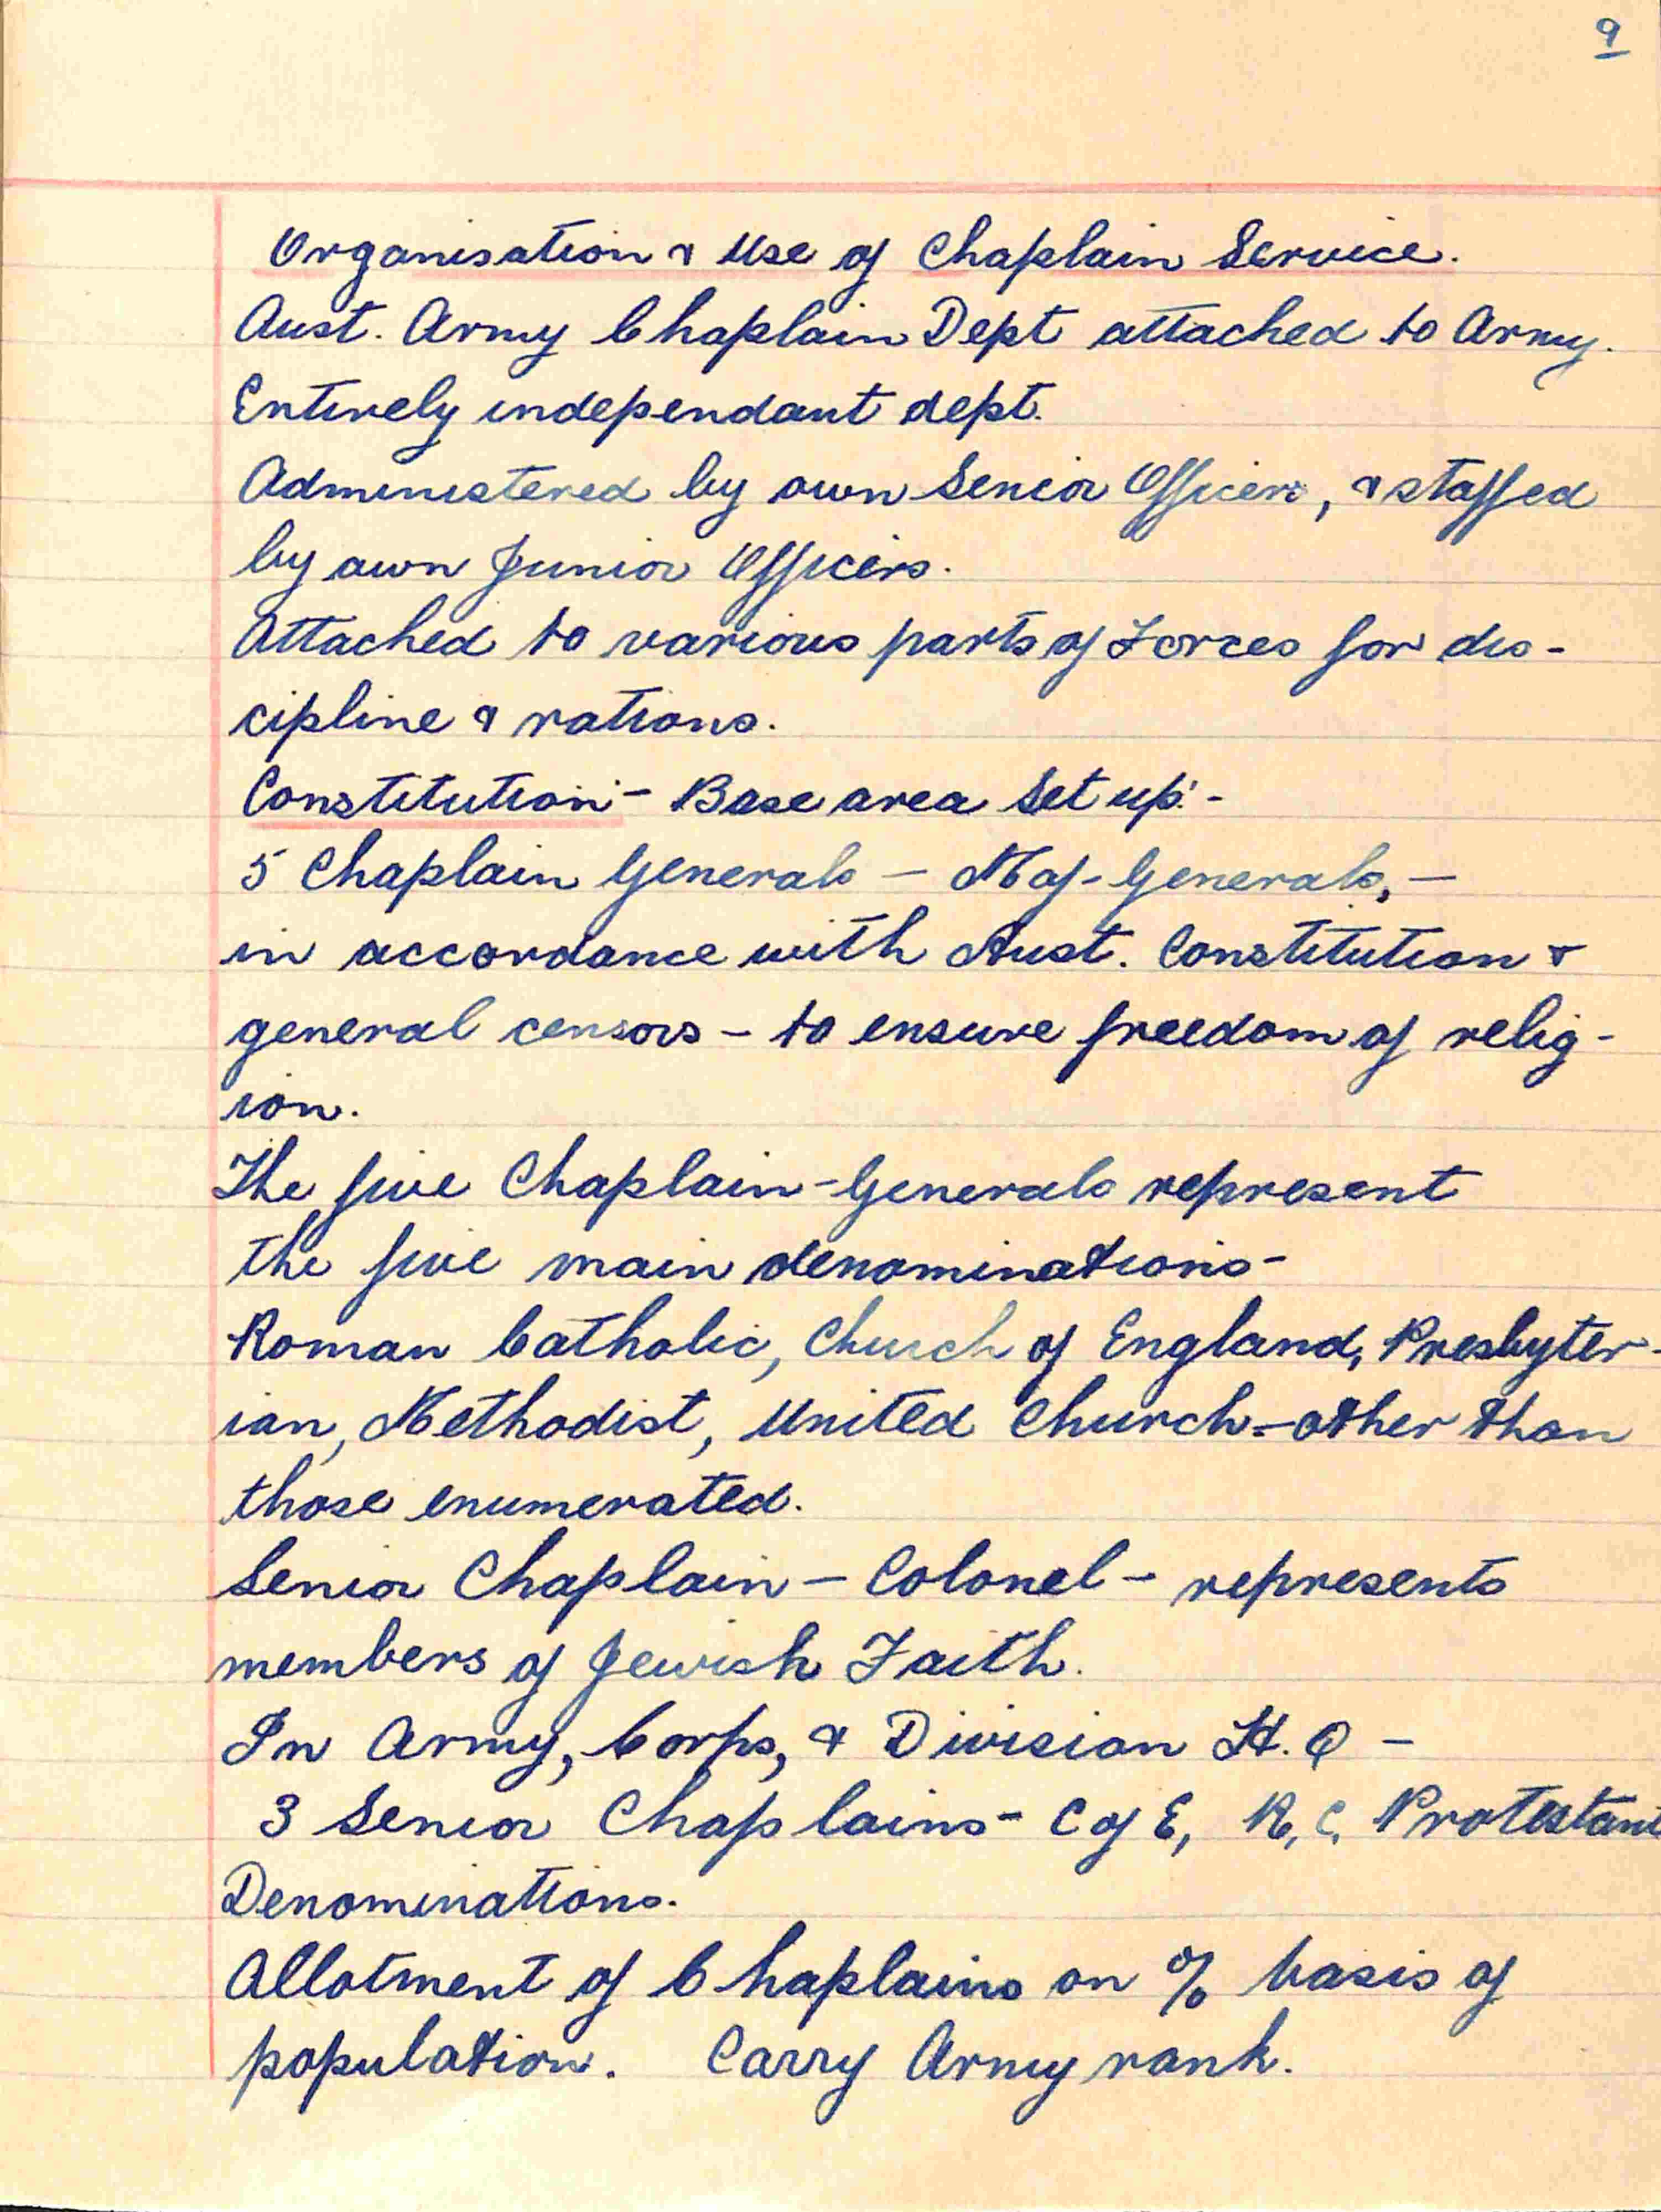 9
Organisation & Use of Chaplain Service.
Aust. Army Chaplain Dept attached to Army.
Entirely independant dept.
Administered by own Senior Officers, & staffed
by own Junior Officers.
Attached to various parts of Forces for dis-
cipline & rations.
Constitution - Base area Set up:-
5 Chaplain Generals - Maj-Generals, -
in accordance with Aust. Constitution &
general censors - to ensure freedom of relig-
ion.
The five Chaplain-Generals represent
the five main denominations-
Roman Catholic, Church of England, Presbyter-
ian, Methodist, United Church - other than
those enumerated.
Senior Chaplain - Colonel - represents
members of Jewish Faith.
In Army, Corps, & Division H.Q -
3 Senior Chaplains - C of E, R.C. Protestant
Denominations.
Allotment of Chaplains on % basis of
population. Carry Army rank.